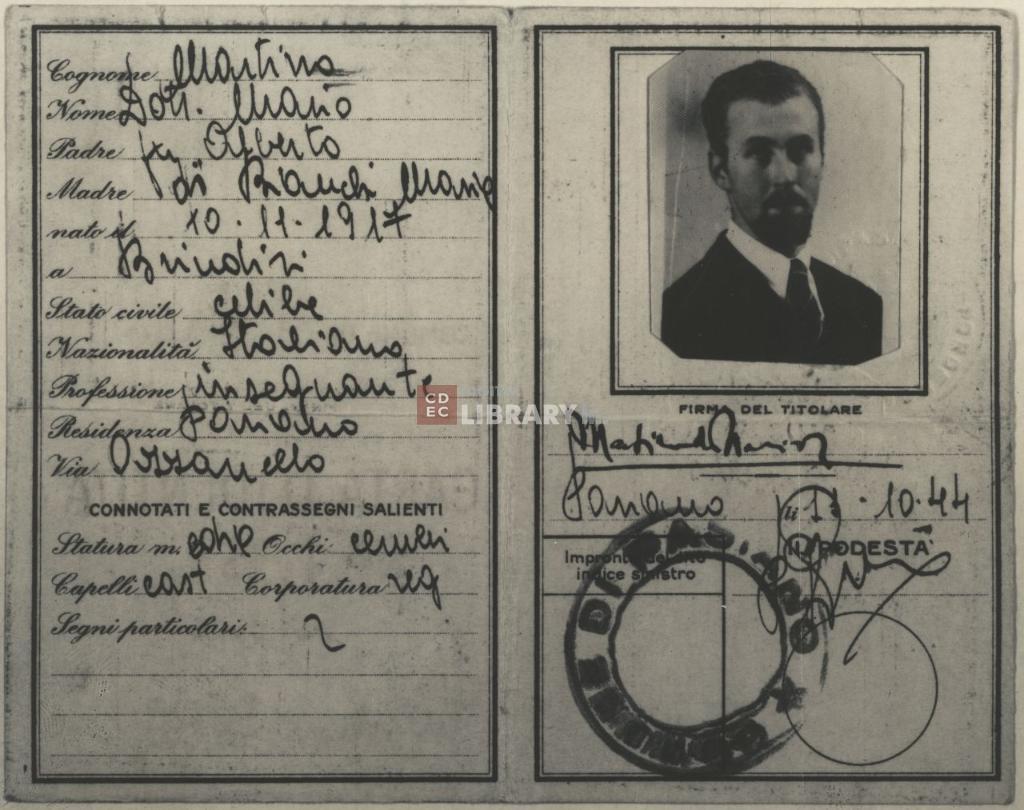 Cognome Martino
Nome Dott. Mario
Padre fu Alberto
Madre di Bianchi Maria
nato il 10.11.1917
a Brindisi
Stato civile celibe
Nazionalità Italiano
Professione insegnante
Residenza
Via Ozzanello
CONNOTATI E CONTRASSEGNI SALIENTI
Statura m. Occhi: cerulei
Capelli cast Corporatura reg
Segni particolari:
CD EC LIBRARY
FIRMA DEL TITOLARE
lì 11.10.44
IL PODESTÀ
Impronta del dito
indice sinistro
COMUNE DI